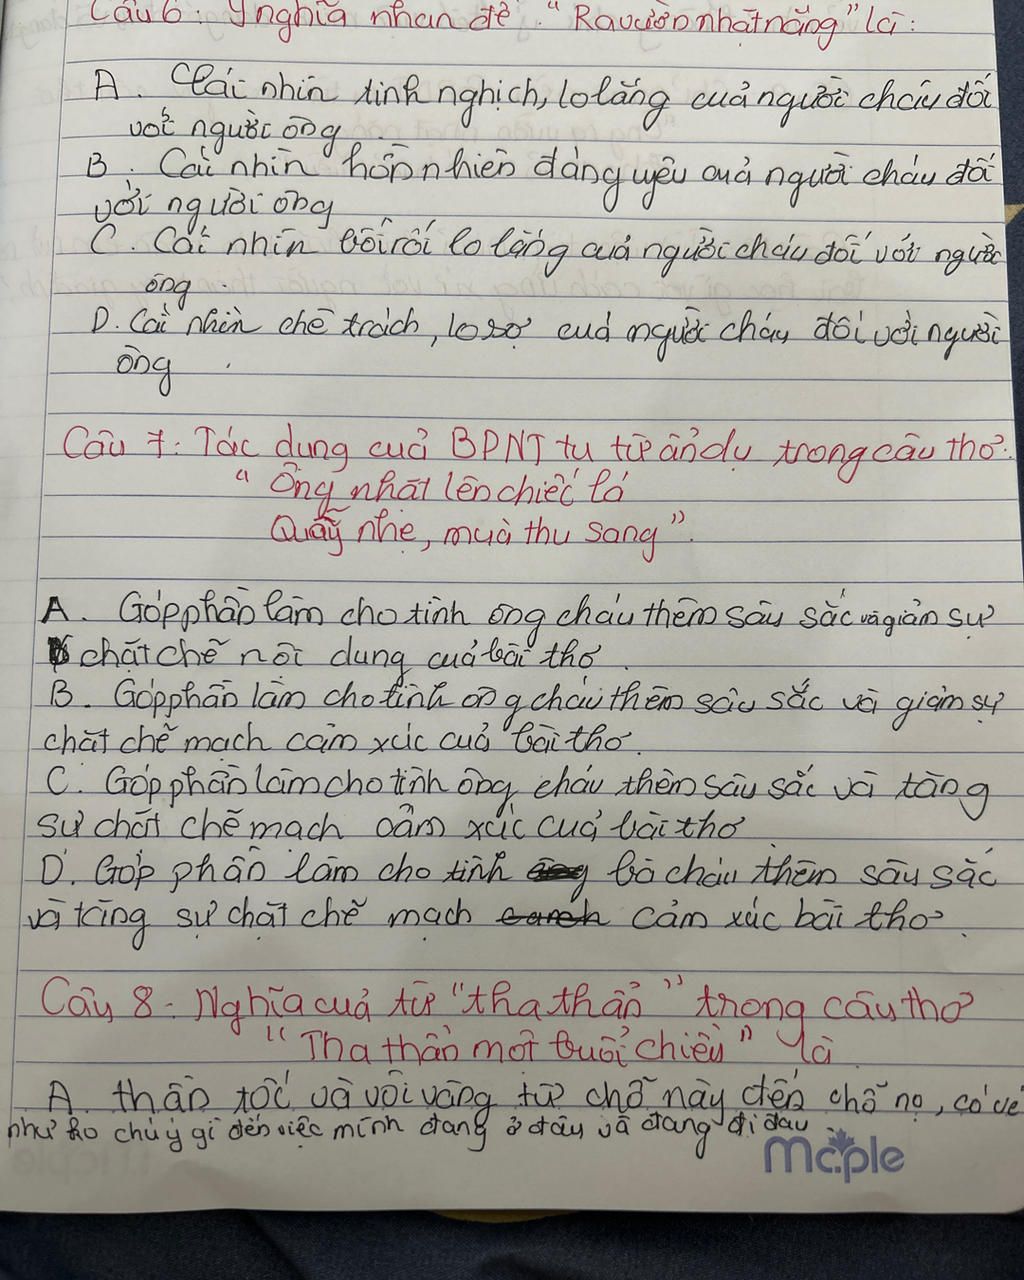 Câu 6: Ý nghĩa nhan đề "Ra vườn nhặt nắng" là:
A. Cái nhìn tinh nghịch, lo lắng của người cháu đối
với người ông
B. Cái nhìn hồn nhiên đáng yêu của người cháu đối
với người ông
C. Cái nhìn bối rối lo lắng của người cháu đối với người
ông
D. Cái nhìn chê trách, lo sợ của người cháu đối với người
ông
Câu 7: Tác dụng của BPNT tu từ ẩn dụ trong câu thơ:
"Ông nhặt lên chiếc lá
Quẫy nhẹ, mùa thu sang"
A. Góp phần làm cho tình ông cháu thêm sâu sắc và giảm sự
chặt chẽ nội dung của bài thơ.
B. Góp phần làm cho tình ông cháu thêm sâu sắc và giảm sự
chặt chẽ mạch cảm xúc của bài thơ.
C. Góp phần làm cho tình ông cháu thêm sâu sắc và tăng
sự chặt chẽ mạch cảm xúc của bài thơ
D. Góp phần làm cho tình bà cháu thêm sâu sắc
và tăng sự chặt chẽ mạch cảm xúc bài thơ.
Câu 8: Nghĩa của từ "tha thẩn" trong câu thơ
"Tha thẩn một buổi chiều" là
A. thần tốc và vội vàng từ chỗ này đến chỗ nọ, có vẻ
như ko chú ý gì đến việc mình đang ở đâu và đang đi đâu.
Maple